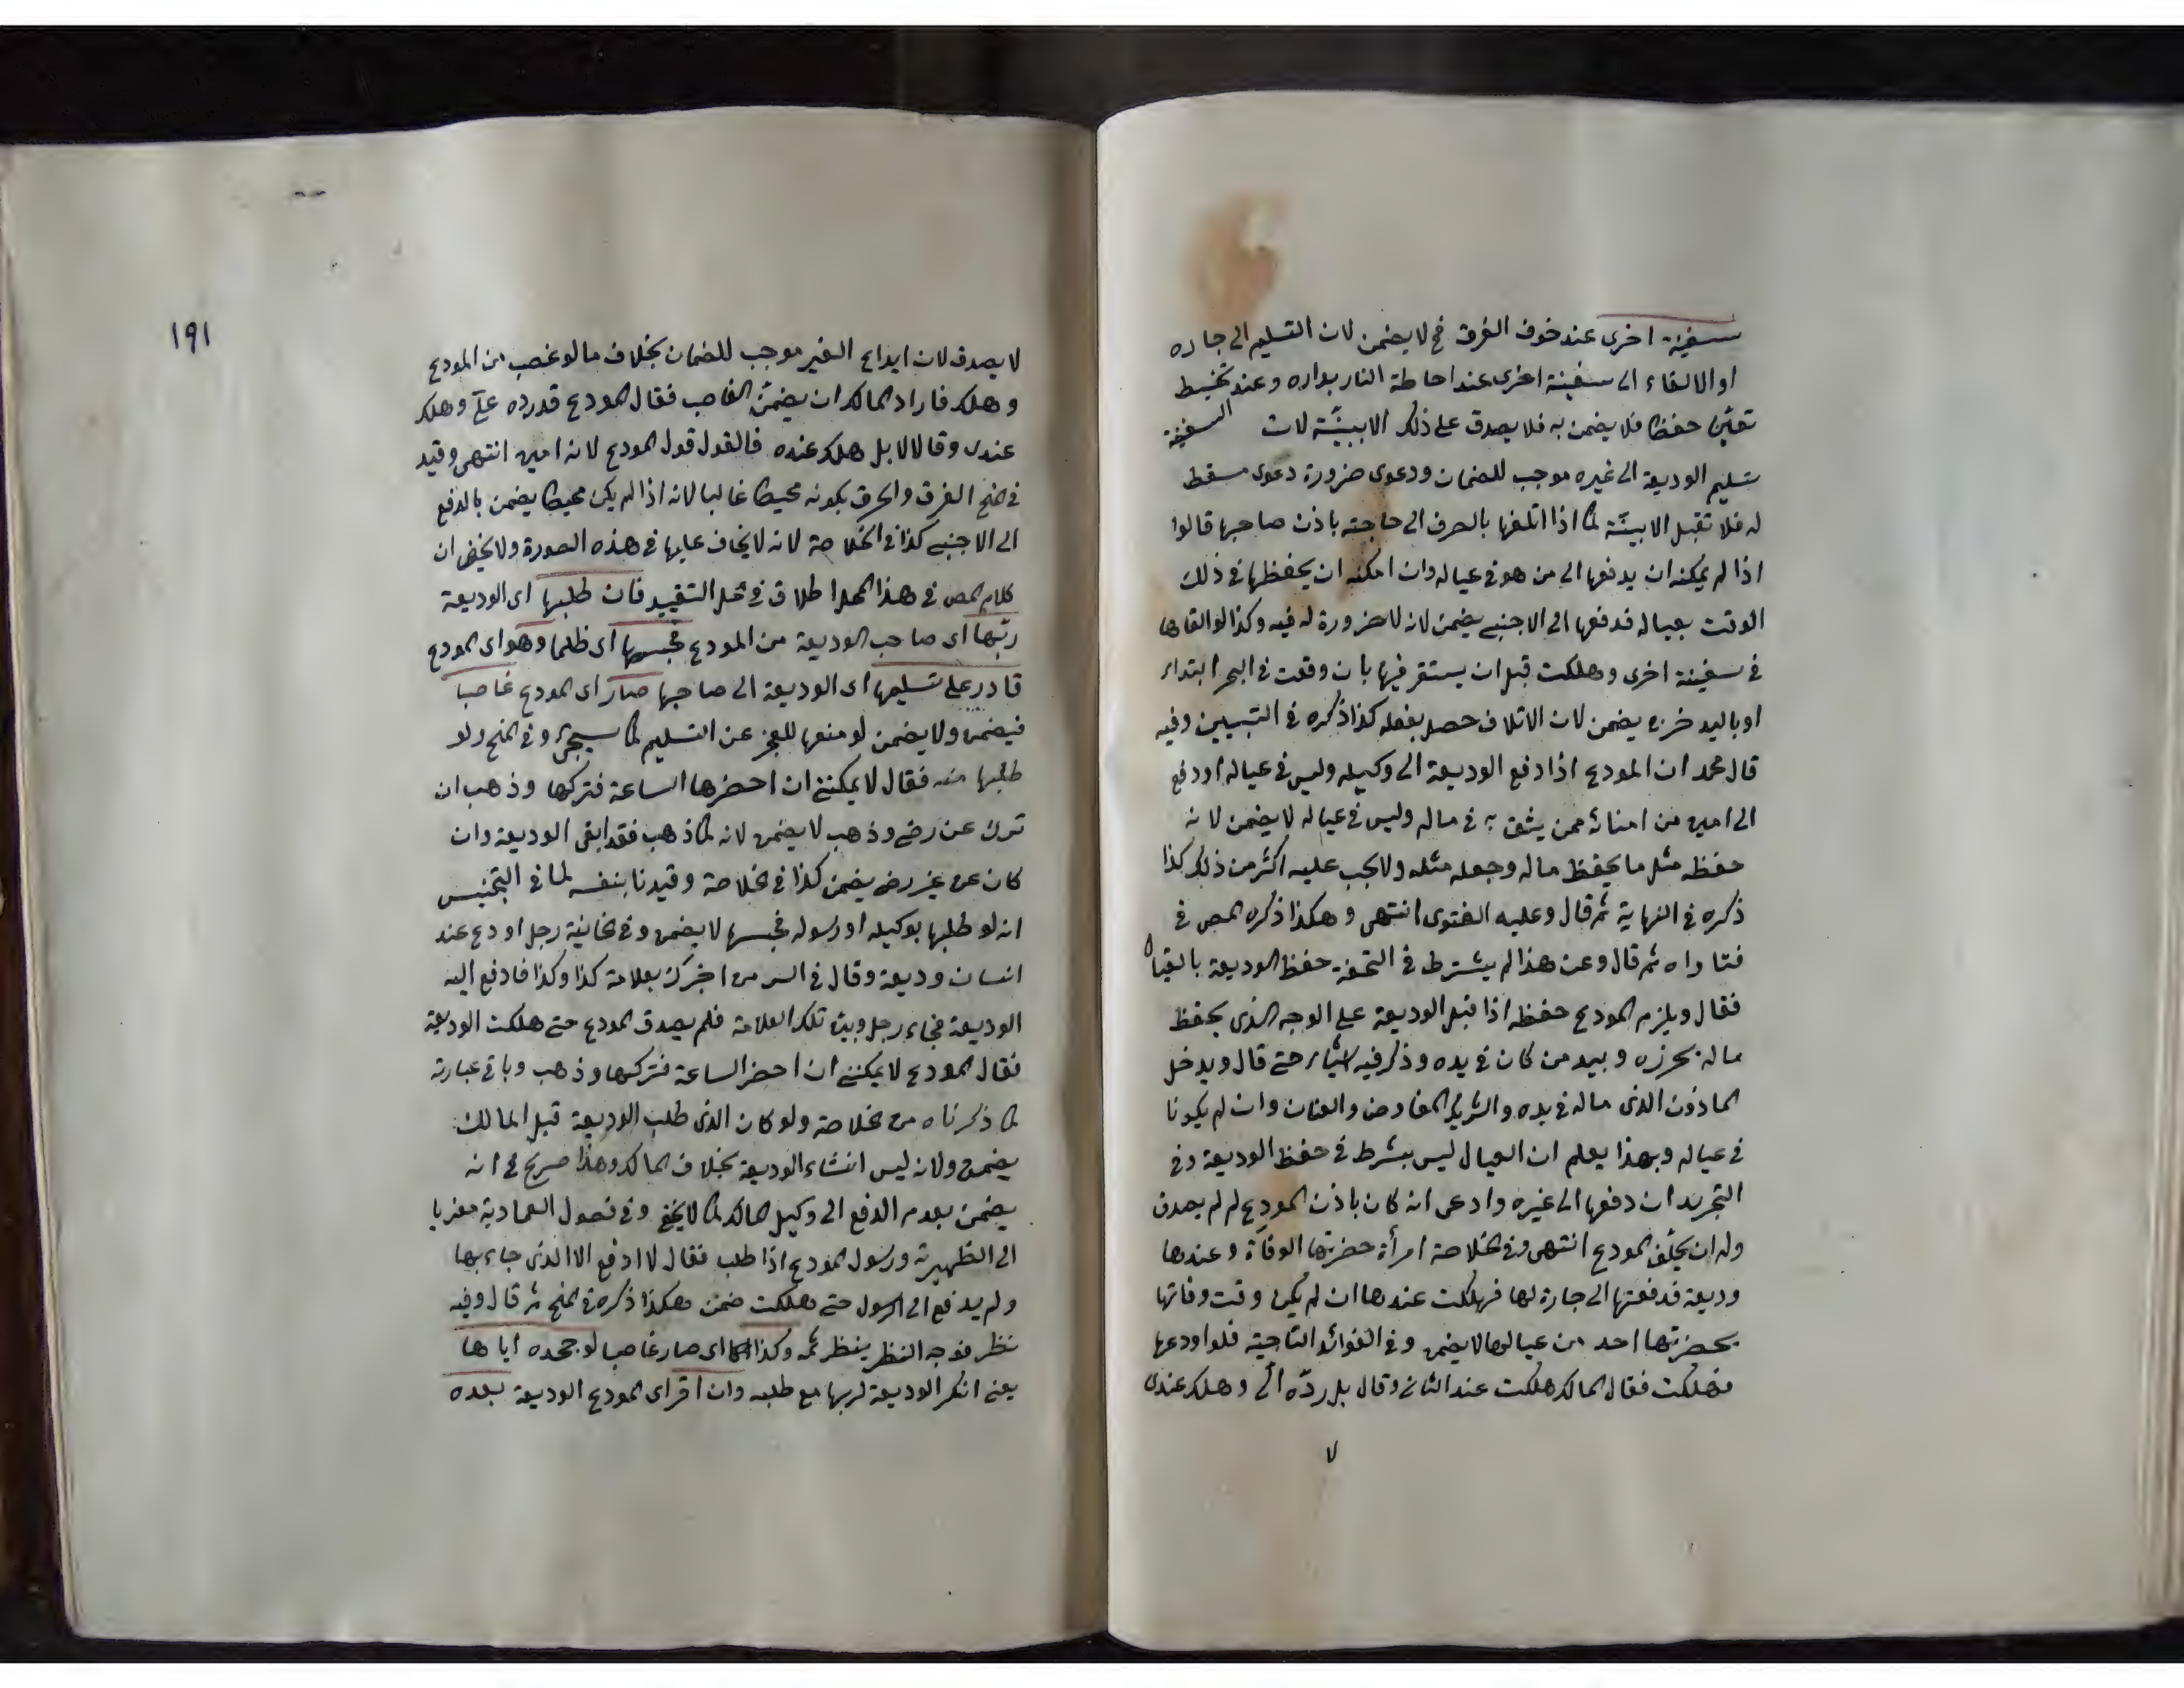 سفينة اخرى عند خوف الغرق فح لا يضمن لان التسليم الى جاره
او الالقاء الى سفينة اخرى عند احاطة النار بداره وعند تخبط
السفينة
تعين حفظا فلا يضمن به فلا يصدق على ذلك الا ببينة لان
تسليم الوديعة الى غيره موجب للضمان ودعوى ضرورة دعوى مسقط
له فلا تقبل الا ببينة كما اذا اتلفها بالصرف الى حاجته باذن صاحبها قالوا
اذا لم يمكنه ان يدفعها الى من هو في عياله وان امكنه ان يحفظها في ذلك
الوقت بعياله فدفعها الى الاجنبي يضمن لانه لا ضرورة له فيه وكذا لو القاها
في سفينة اخرى وهلكت قبل ان يستقر فيها بان وقعت في البحر ابتداء
او باليد خرزه يضمن لان الاتلاف حصل بفعله كذا ذكره في التبيين وفيه
قال محمد ان المودع اذا دفع الوديعة الى وكيله وليس في عياله او دفع
الى امين من امنائه ممن يثق به في ماله وليس في عياله لا يضمن لانه
حفظه مثل ما يحفظ ماله وجعله مثله ولا يجب عليه اكثر من ذلك كذا
ذكره في النهاية ثم قال وعليه الفتوى انتهى وهكذا ذكره المص في
فتاواه ثم قال وعن هذا لم يشترط في التحفة حفظ الوديعة بالعيال
فقال ويلزم المودع حفظه اذا قبل الوديعة على الوجه الذى يحفظ
ماله بحرزه وبيد من كان في يده وذكر فيه اشياء حتى قال ويدخل
الماذون الذى ماله في يده والشريك المفاوض والعنان وان لم يكونا
في عياله وبهذا يعلم ان العيال ليس بشرط في حفظ الوديعة وفي
التجريد ان دفعها الى غيره وادعى انه كان باذن المودع لم يصدق
وله ان يحلف المودع انتهى وفي الخلاصة امرأة حضرتها الوفاة وعندها
وديعة فدفعتها الى جارة لها فهلكت عندها ان لم يكن وقت وفاتها
بحضرتها احد من عيالها لا يضمن وفي الفوائد التاجية فلو اودعها
فهلكت فقال المالك هلكت عند الثانى وقال بل رده الى وهلك عندى
لا
١٩١
لا يصدق لان ايداع الغير موجب للضمان بخلاف ما لو غصب من المودع
وهلك فاراد المالك ان يضمن الغاصب فقال المودع قد رده على وهلك
عندى وقال لا بل هلك عنده فالقول قول المودع لانه امين انتهى وقيد
في المنح الغرق والحرق بكونه محيطا غالبا لانه اذا لم يكن محيطا يضمن بالدفع
الى الاجنبى كذا في الخلاصة لانه لا يخاف عليها في هذه الصورة ولا يخفى ان
كلام المص في هذا المحل اطلاق في محل التقييد فان طلبها اى الوديعة
ربها اى صاحب الوديعة من المودع فحبسها اى ظلما وهو اى المودع
قادر على تسليمها اى الوديعة الى صاحبها صار اى المودع غاصبا
فيضمن ولا يضمن لو منعها للعجز عن التسليم كما سيجئ وفي المنح ولو
طلبها منه فقال لا يمكننى ان احضرها الساعة فتركها وذهب ان
ترك عن رضى وذهب لا يضمن لانه لما ذهب فقد ابقى الوديعة وان
كان عن غير رضى يضمن كذا في الخلاصة وقيدنا بنفسه لما في التجنيس
انه لو طلبها بوكيله او رسوله فحبسها لا يضمن وفي الخانية رجل اودع عند
انسان وديعة وقال في السر من اخبرك بعلامة كذا وكذا فادفع اليه
الوديعة فجاء رجل وبين تلك العلامة فلم يصدق المودع حتى هلكت الوديعة
فقال المودع لا يمكننى ان احضر الساعة فتركها وذهب وباقى عبارته
كما ذكرناه من الخلاصة ولو كان الذى طلب الوديعة قبل المالك
يضمن ولانه ليس انشاء الوديعة بخلاف المالك وهذا صريح في انه
يضمن بعدم الدفع الى وكيل المالك كما لا يخفى وفي فصول العمادية معزيا
الى الظهيرية ورسول المودع اذا طلب فقال لا ادفع الا الذى جاء بها
ولم يدفع الى الرسول حتى هلكت ضمن هكذا ذكره في المنح ثم قال وفيه
نظر فوجه النظر ينظر ثمه وكذا اى صار غاصبا لو جحده اياها
يعنى انكر الوديعة لربها مع طلبه وان اقر اى المودع الوديعة بعده